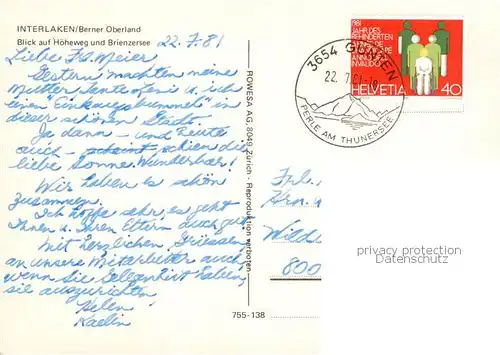 INTERLAKEN/Berner Oberland
Blick auf Höheweg und Brienzersee
22.7.81
Liebe Frl. Meier
Gestern machten meine
Mutter, u. ich
einen "Einkaufsbummel" in
dieser schönen Stadt.
Ja dann – und heute
auch – scheint schien die
liebe Sonne. Wunderbar!
Wir haben es schön
zusammen.
Ich hoffe sehr, es geht
Ihnen u. Ihren Eltern auch gut.
Mit herzlichen Grüssen
an unsere Mitarbeiter auch,
wenn Sie haben,
sie auszurichten
Helen
Kaelin
ROWESA AG, 8049 Zürich - Reproduktion verboten
755-138
3654 GUNTEN
22.7.81-18
PERLE AM THUNERSEE
1981
JAHR DES BEHINDERTEN
HELVETIA 40
Frl.
Wild
800
privacy protection
Datenschutz